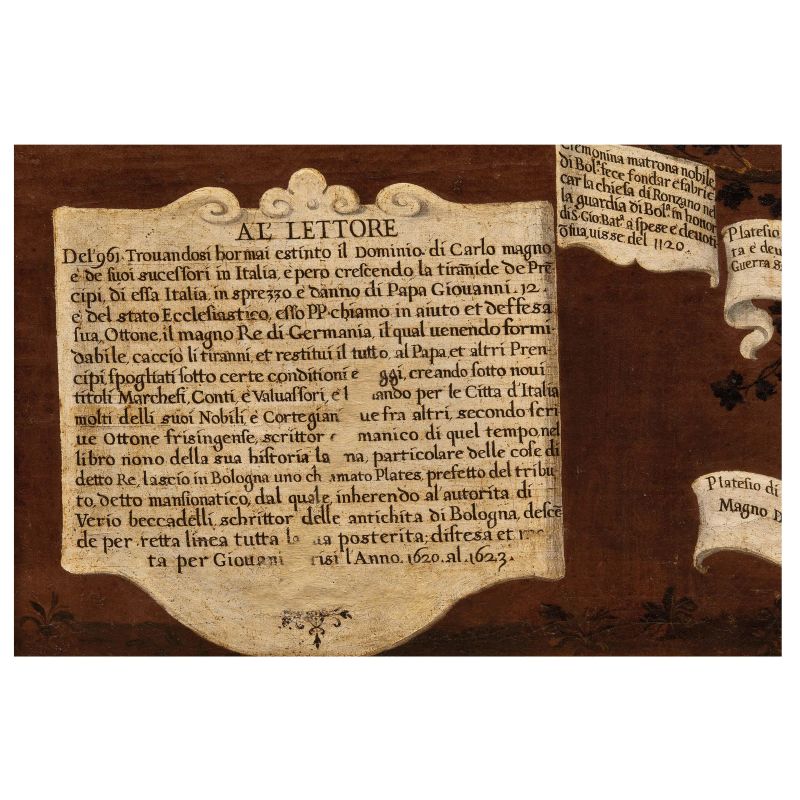 AL' LETTORE
Del'961. Trouandosi hormai estinto il Dominio di Carlo magno
e de suoi sucessori in Italia, e però crescendo la tirànide de Prē
cipi, di essa Italia, in sprezzo e dānno di Papa Giouanni .12.
e del stato Ecclesiastico, esso PP. chiamo in aiuto et deffesa
sua, Ottone, il magno Re di Germania, il qual uenendo formi
dabile, cacciò li tiranni, et restitui il tutto, al Papa, et altri Pren
cipi, spogliati sotto certe conditioni e ggi, creando sotto noui
titoli Marchesi, Conti, e Valuassori, e l ando per le Citta d'Italia
molti delli suoi Nobili, e Cortegian ue fra altri, secondo scri
ue Ottone frisingense, scrittor manico di quel tempo, nel
libro nono della sua historia la na, particolare delle cose di
detto Re, lasciò in Bologna uno ch amato Plates, prefetto del tribu
to, detto mansionatico, dal quale, inherendo al autorita di
Verio beccadelli, schrittor delle antichita di Bologna, desce
de per retta linea tutta la ua posterita; distesa et
ta per Giouani risi l'Anno. 1620. al. 1623.
Cremonina matrona nobile
di Bol.ª fece fondar e fabric
car la chiesa di Ronzano nel
la guardia di Bol.ª in honor
di S. Gio. Bat.ª a spese e deuoti
o sua, uisse del 1120.
Platesio
ta e deu
Guerra S
Platesio di
Magno D